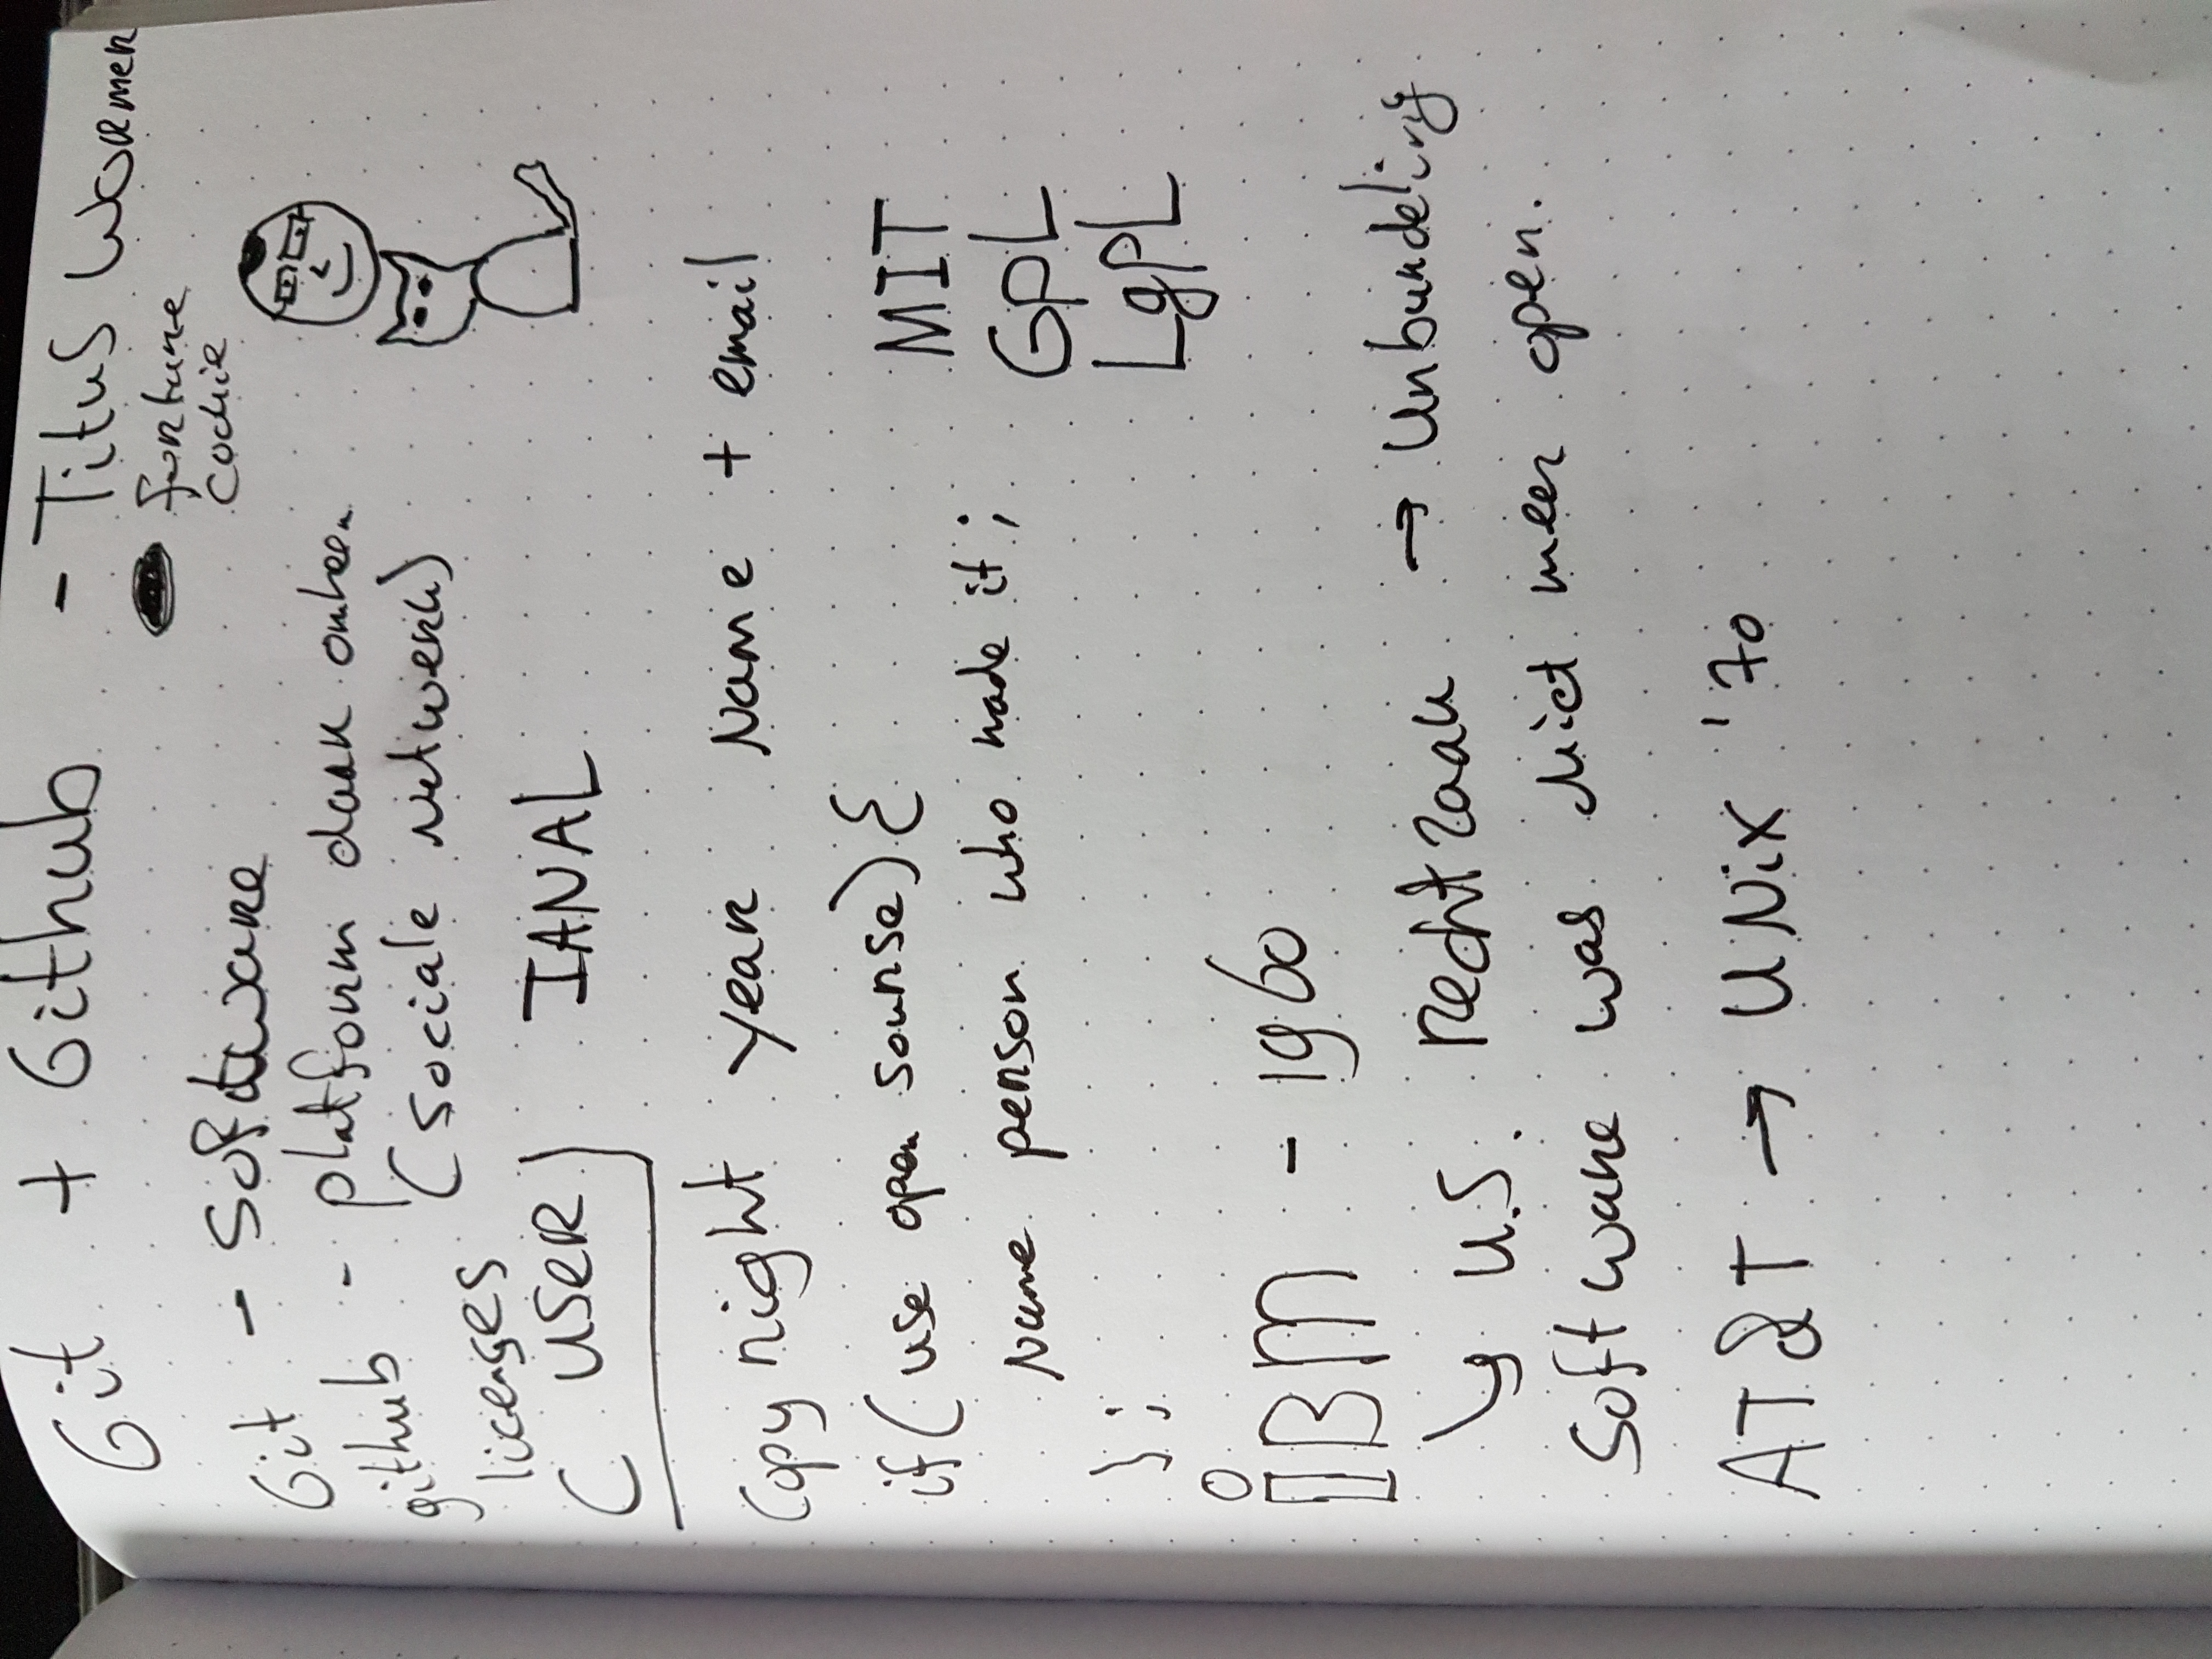 Git + Github - Titus Wormer
fortune
cookie
Git - Software
github - platform daar omheen
(sociale netwerk)
licenses
(USER) IANAL
Copyright year Name + email
if (use open sourse) {
Name person who made it;
};
MIT
GPL
LgPL
iBM - 1960
↳ U.S. Rechtzaak → Unbundeling
Software was Niet meer open.
AT&T → UNix '70